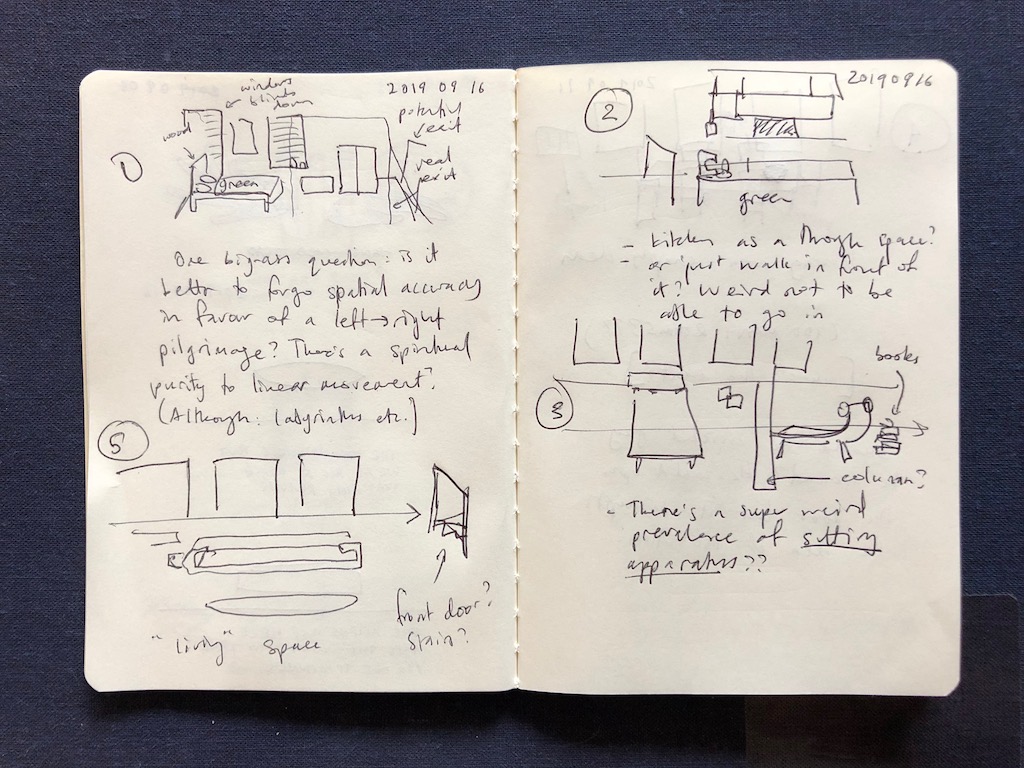 2019 09 16
windows
blinds
down
wood
potential
exit
real
exit
1
green
One big-ass question: is it
better to forgo spatial accuracy
in favor of a left→right
pilgrimage? There's a spiritual
purity to linear movement?
(Although: labyrinths etc.)
5
front door?
stair?
"living" space
20190916
2
green
- kitchen as a through space?
- or just walk in front of
it? Weird not to be
able to go in
books
3
column?
- There's a super weird
prevalence of sitting
apparatus??